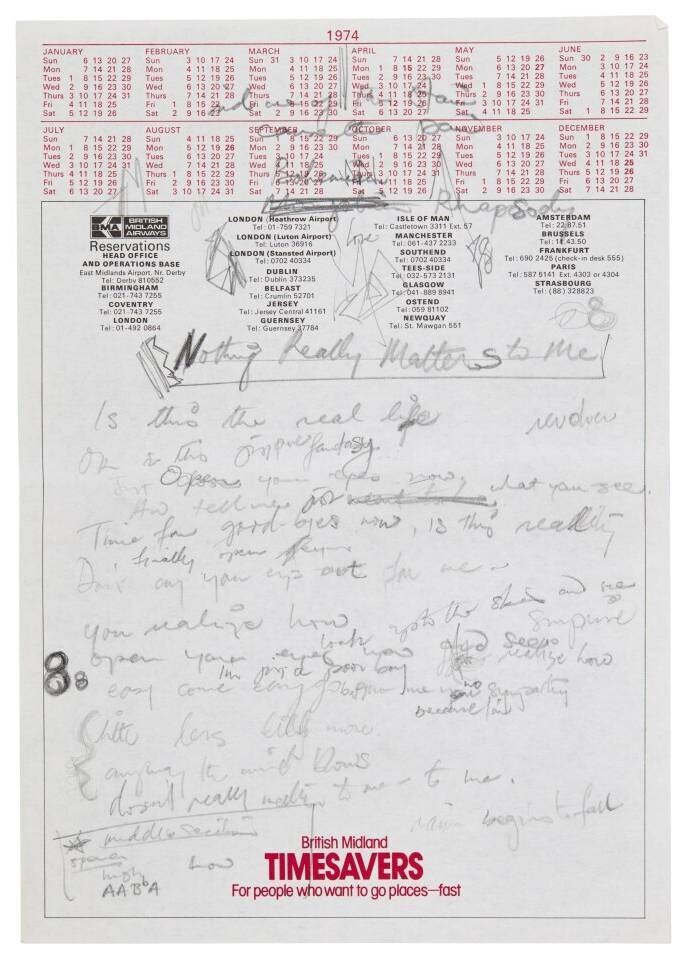 1974
JANUARY FEBRUARY MARCH APRIL MAY JUNE
Sun 6 13 20 27 Sun 3 10 17 24 Sun 31 3 10 17 24 Sun 7 14 21 28 Sun 5 12 19 26 Sun 30 2 9 16 23
Mon 7 14 21 28 Mon 4 11 18 25 Mon 4 11 18 25 Mon 1 8 15 22 29 Mon 6 13 20 27 Mon 3 10 17 24
Tues 1 8 15 22 29 Tues 5 12 19 26 Tues 5 12 19 26 Tues 2 9 16 23 30 Tues 7 14 21 28 Tues 4 11 18 25
Wed 2 9 16 23 30 Wed 6 13 20 27 Wed 6 13 20 27 Wed 3 10 17 24 Wed 1 8 15 22 29 Wed 5 12 19 26
Thurs 3 10 17 24 31 Thurs 7 14 21 28 Thurs 7 14 21 28 Thurs 4 11 18 25 Thurs 2 9 16 23 30 Thurs 6 13 20 27
Fri 4 11 18 25 Fri 1 8 15 22 Fri 1 8 15 22 29 Fri 5 12 19 26 Fri 3 10 17 24 31 Fri 7 14 21 28
Sat 5 12 19 26 Sat 2 9 16 23 Sat 2 9 16 23 30 Sat 6 13 20 27 Sat 4 11 18 25 Sat 1 8 15 22 29
JULY AUGUST SEPTEMBER OCTOBER NOVEMBER DECEMBER
Sun 7 14 21 28 Sun 4 11 18 25 Sun 1 8 15 22 29 Sun 6 13 20 27 Sun 3 10 17 24 Sun 1 8 15 22 29
Mon 1 8 15 22 29 Mon 5 12 19 26 Mon 2 9 16 23 30 Mon 7 14 21 28 Mon 4 11 18 25 Mon 2 9 16 23 30
Tues 2 9 16 23 30 Tues 6 13 20 27 Tues 3 10 17 24 Tues 1 8 15 22 29 Tues 5 12 19 26 Tues 3 10 17 24 31
Wed 3 10 17 24 31 Wed 7 14 21 28 Wed 4 11 18 25 Wed 2 9 16 23 30 Wed 6 13 20 27 Wed 4 11 18 25
Thurs 4 11 18 25 Thurs 1 8 15 22 29 Thurs 5 12 19 26 Thurs 3 10 17 24 31 Thurs 7 14 21 28 Thurs 5 12 19 26
Fri 5 12 19 26 Fri 2 9 16 23 30 Fri 6 13 20 27 Fri 4 11 18 25 Fri 1 8 15 22 29 Fri 6 13 20 27
Sat 6 13 20 27 Sat 3 10 17 24 31 Sat 7 14 21 28 Sat 5 12 19 26 Sat 2 9 16 23 30 Sat 7 14 21 28
Bohemian
Rhapsody
BMA BRITISH MIDLAND AIRWAYS
Reservations
HEAD OFFICE
AND OPERATIONS BASE
East Midlands Airport, Nr. Derby
Tel: Derby 810552
BIRMINGHAM
Tel: 021-743 7255
COVENTRY
Tel: 021-743 7255
LONDON
Tel: 01-492 0864
LONDON (Heathrow Airport)
Tel: 01-759 7321
LONDON (Luton Airport)
Tel: Luton 36916
LONDON (Stansted Airport)
Tel: 0702 40334
DUBLIN
Tel: Dublin 373235
BELFAST
Tel: Crumlin 52701
JERSEY
Tel: Jersey Central 41161
GUERNSEY
Tel: Guernsey 37784
love
ISLE OF MAN
Tel: Castletown 3311 Ext. 57
MANCHESTER
Tel: 061-437 2233
SOUTHEND
Tel: 0702 40334
TEES-SIDE
Tel: 032-573 2131
GLASGOW
Tel: 041-889 8941
OSTEND
Tel: 059 81102
NEWQUAY
Tel: St. Mawgan 551
AMSTERDAM
Tel: 22.87.51
BRUSSELS
Tel: 18.43.50
FRANKFURT
Tel: 690 2425 (check-in desk 555)
PARIS
Tel: 587 5141 Ext. 4303 or 4304
STRASBOURG
Tel: (88) 328823
Nothing Really Matters to Me
Is this the real life
or is this just fantasy
Just Open your eyes now, what you see
And tell me
Time for good-byes now, is this reality
finally open
Don't cry your eyes out for me
you realize how
look upto the skies and see
open your eyes now
surprise
I'm just a poor boy
realize how
easy come easy go
no sympathy
because I'm
8 8
little high little low
anyway the wind blows
doesn't really matter to me - to me.
middle section
begins to fall
high low
AABbA
British Midland
TIMESAVERS
For people who want to go places—fast